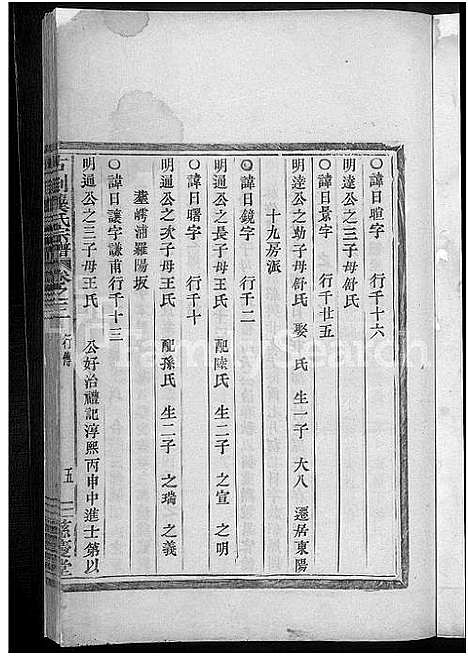 ○諱曰暄字 行千十六
明達公之三子母舒氏
○諱曰景字 行千廿五
明達公之幼子母舒氏 娶 氏 生一子 大八 遷居東陽
十九房派
○諱曰鏡字 行千二
明通公之長子母王氏 配陸氏 生二子 之宣 之明
○諱曰曙字 行千十
明通公之次子母王氏 配孫氏 生二子 之瑞 之義
浦羅陽坂
○諱曰讓字謙甫行千十三
明通公之三子母王氏 公好治禮記淳熙丙申中進士第以
古剡 氏宗譜 卷之三 行傳 五 慈慶堂
FamilySearch